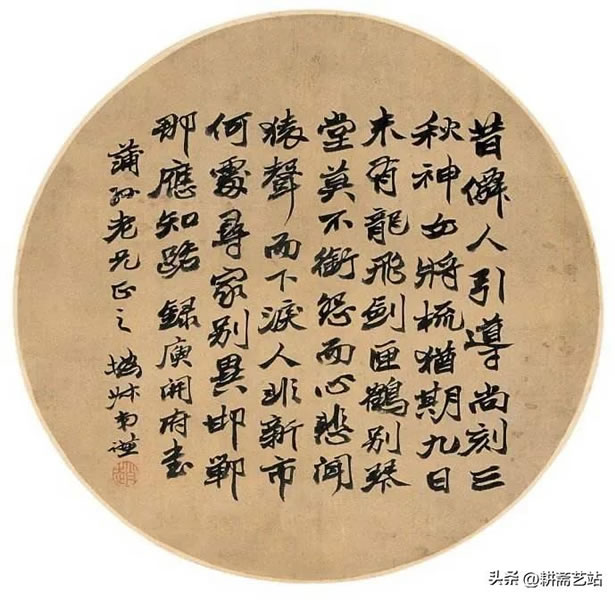 昔僊人引導尚刻三
秋神女將梳猶期九日
未有龍飛劍匣鶴別琴
堂莫不銜怨而心悲聞
猿聲而下淚人非新市
何處尋家別異邯鄲
那應知路 錄庾開府書
蒲孫老兄正之 撝叔弟謙
头条 @耕斋艺站